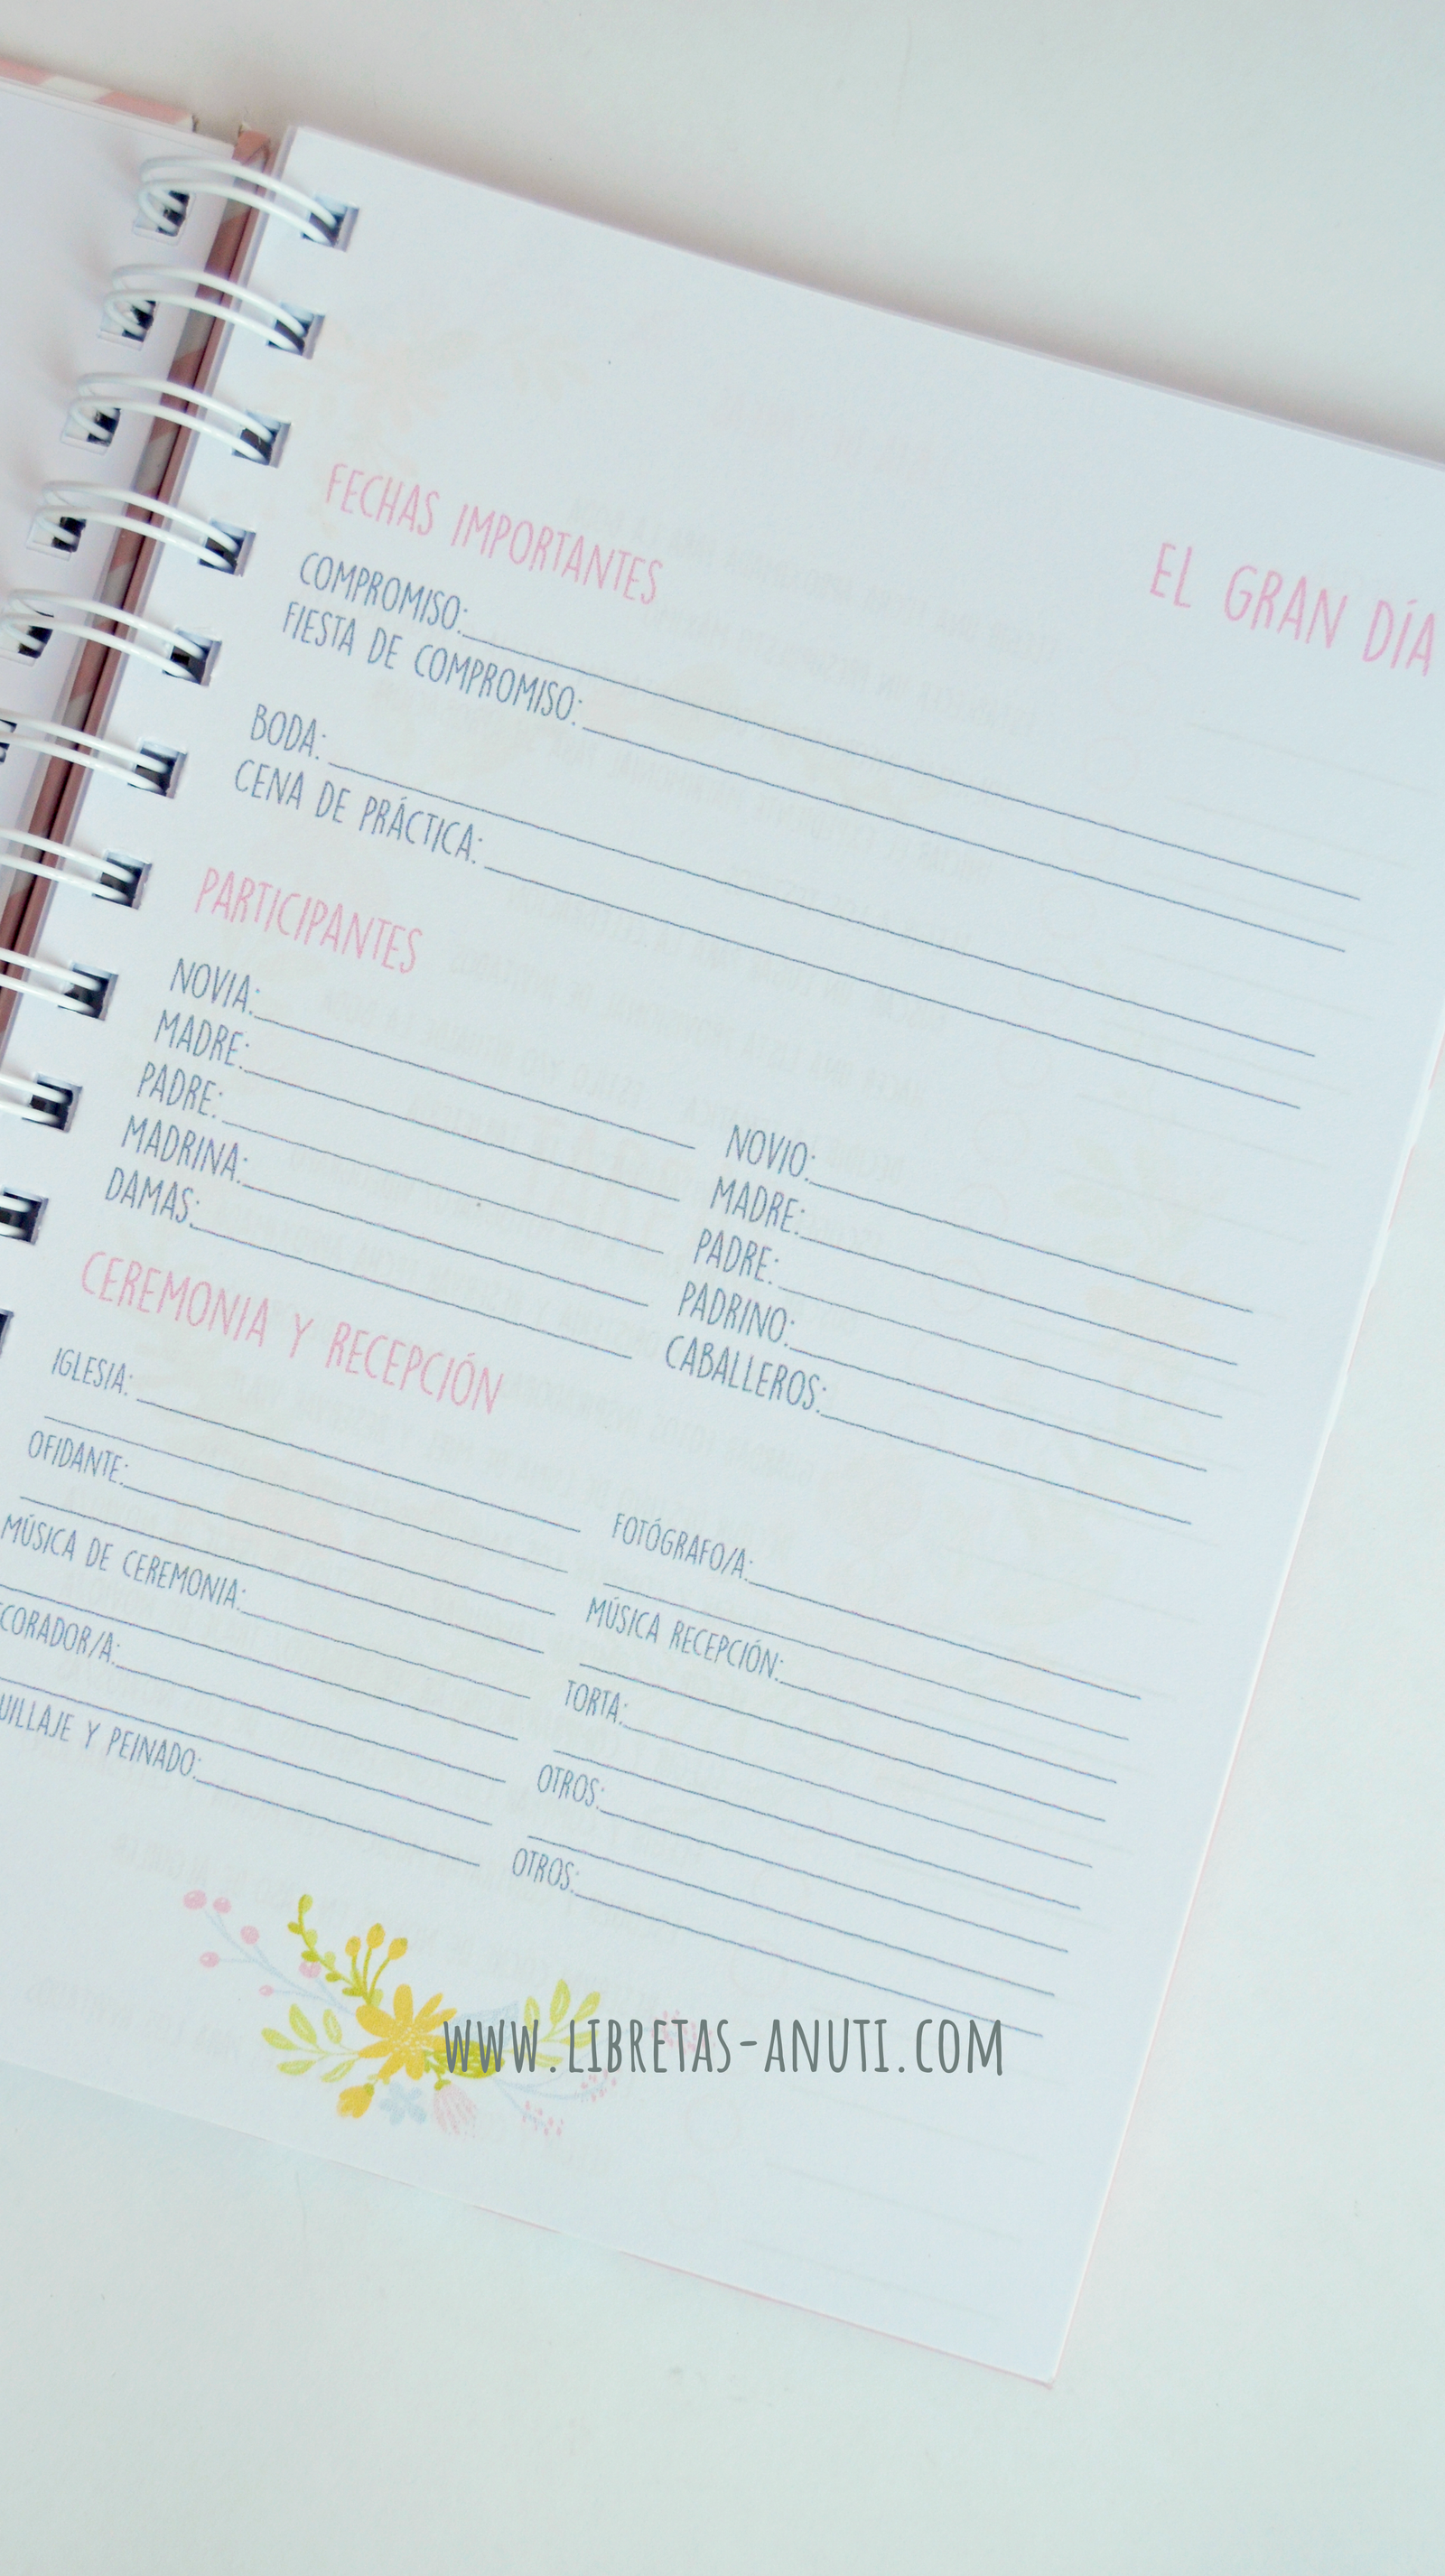 EL GRAN DÍA
FECHAS IMPORTANTES
COMPROMISO:
FIESTA DE COMPROMISO:
BODA:
CENA DE PRÁCTICA:
PARTICIPANTES
NOVIA:
MADRE:
PADRE:
MADRINA:
DAMAS:
NOVIO:
MADRE:
PADRE:
PADRINO:
CABALLEROS:
CEREMONIA Y RECEPCIÓN
IGLESIA:
OFIDANTE:
MÚSICA DE CEREMONIA:
CORADOR/A:
UILLAJE Y PEINADO:
FOTÓGRAFO/A:
MÚSICA RECEPCIÓN:
TORTA:
OTROS:
OTROS:
WWW.LIBRETAS-ANUTI.COM